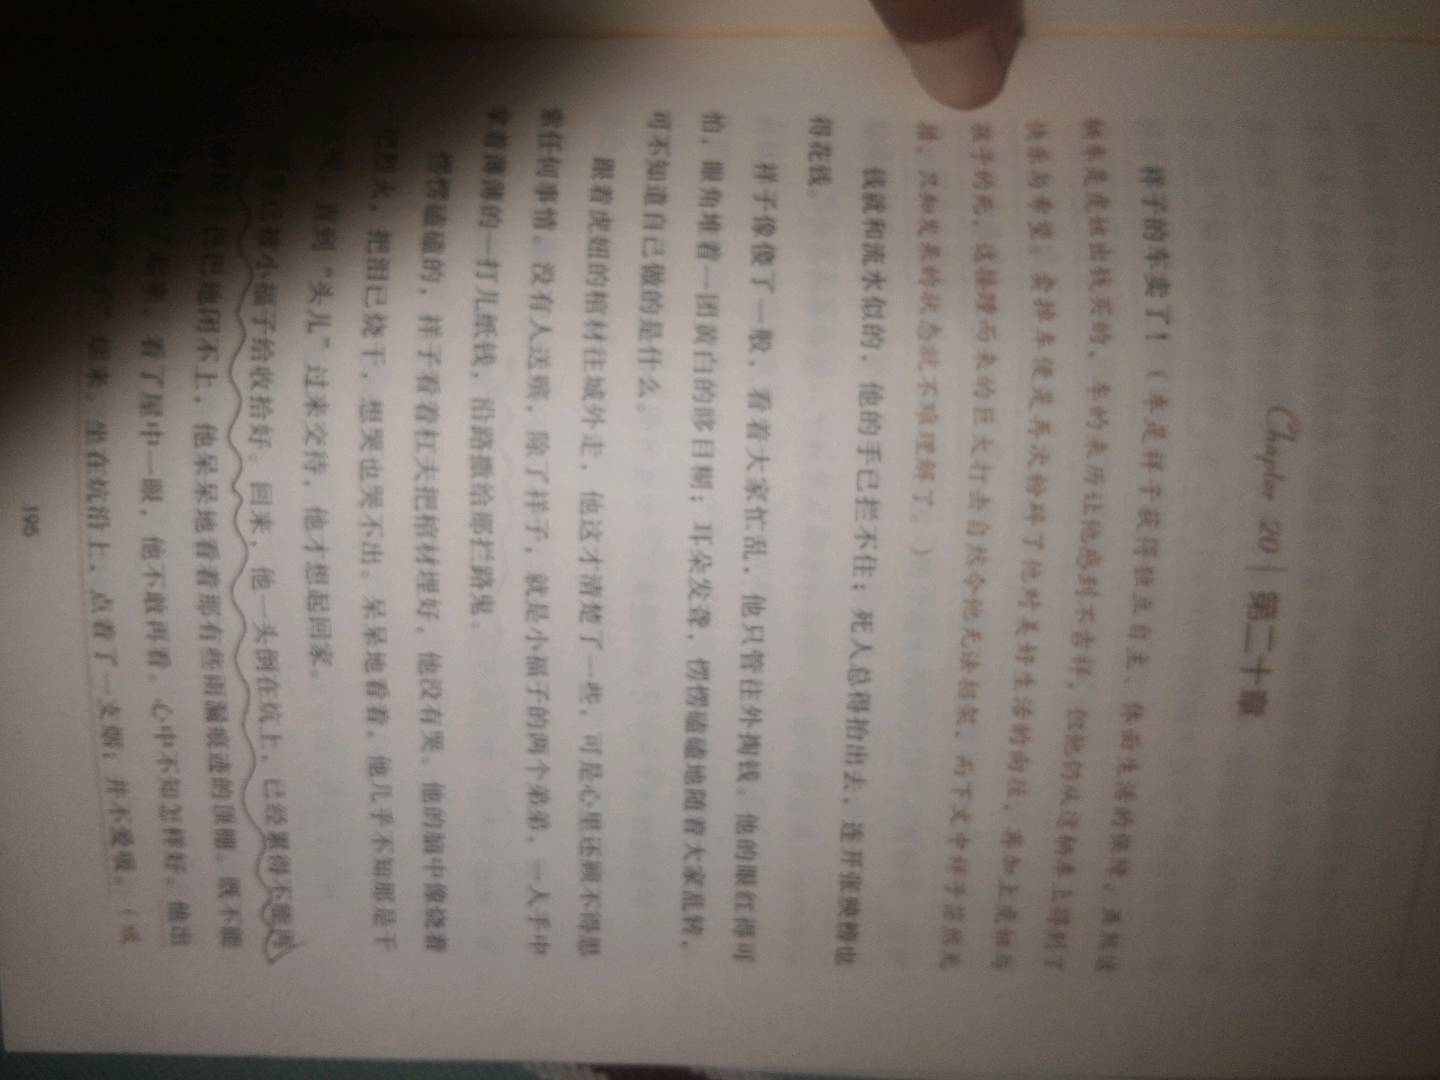 Chapter 20 | 第二十章
祥子的车卖了！（车是祥子获得独立自主、体面生活的保障，虽然这
辆车是虎妞出钱买的，车的来历让他感到不吉祥，但他仍从这辆车上得到了
快乐与希望。卖掉车便是再次粉碎了他对美好生活的向往，再加上虎妞与
孩子的死，这接踵而来的巨大打击自然令他无法招架，而下文中祥子茫然无
措、只如发呆的状态就不难理解了。）
钱就和流水似的，他的手已拦不住；死人总得抬出去，连开张殃榜也
得花钱。
祥子像傻了一般，看着大家忙乱，他只管往外掏钱。他的眼红得可
怕，眼角堆着一团黄白的眵目糊；耳朵发聋，愣愣磕磕地随着大家乱转，
可不知道自己做的是什么。
跟着虎妞的棺材往城外走，他这才清楚了一些，可是心里还顾不得思
索任何事情。没有人送殡，除了祥子，就是小福子的两个弟弟，一人手中
拿着薄薄的一打儿纸钱，沿路撒给那拦路鬼。
愣愣磕磕的，祥子看着杠夫把棺材埋好，他没有哭。他的脑中像烧着
一把烈火，把泪已烧干，想哭也哭不出。呆呆地看着，他几乎不知那是干
直到“头儿”过来交待，他才想起回家。
已被小福子给收拾好。回来，他一头倒在炕上，已经累得不能再
巴巴地闭不上，他呆呆地看着那有些雨漏痕迹的顶棚。既不能
看了屋中一眼，他不敢再看。心中不知怎样好。他出
烟来。坐在炕沿上，点着了一支烟；并不爱吸。（
195